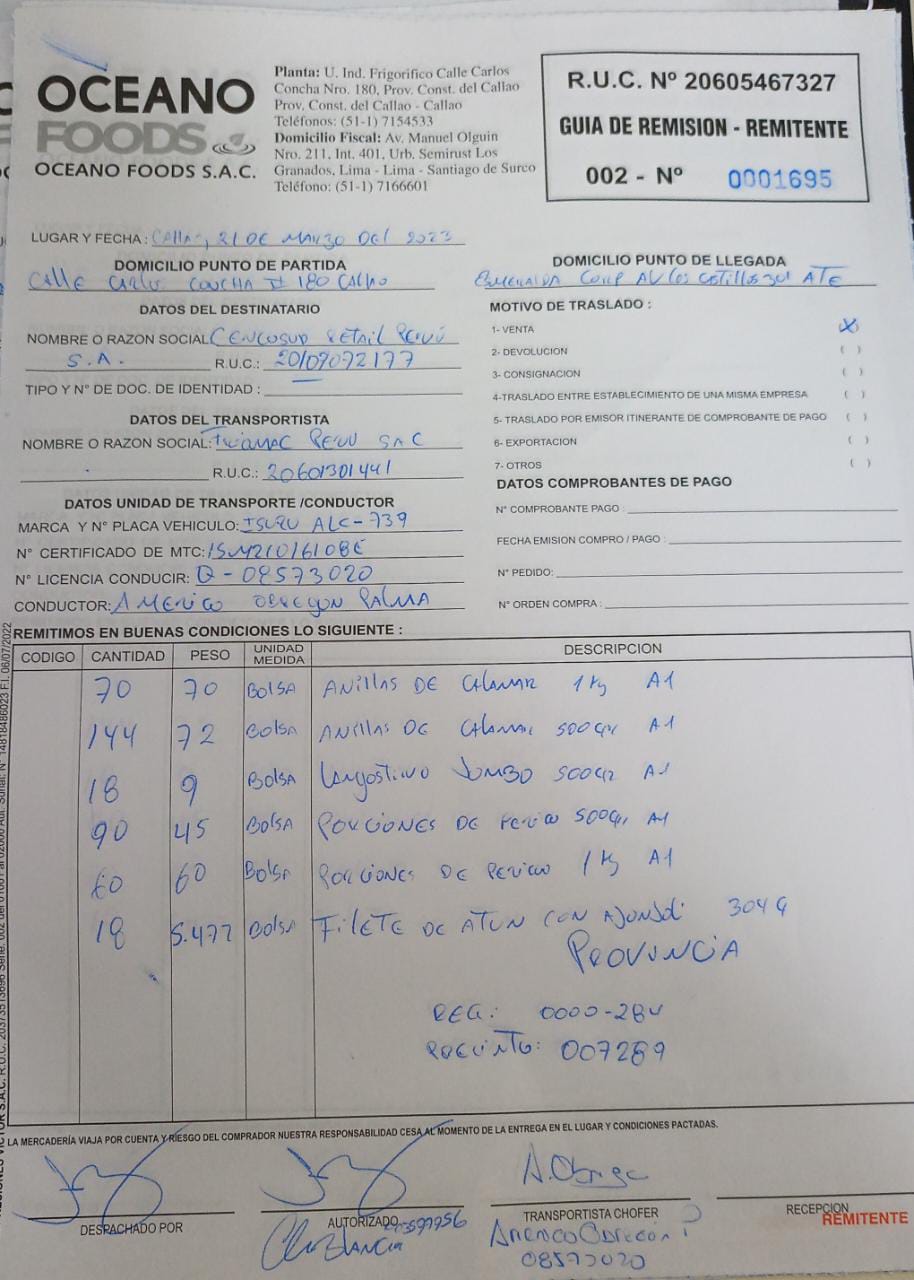 OCEANO
FOODS
OCEANO FOODS S.A.C.
Planta: U. Ind. Frigorifico Calle Carlos
Concha Nro. 180, Prov. Const. del Callao
Prov. Const. del Callao - Callao
Teléfonos: (51-1) 7154533
Domicilio Fiscal: Av. Manuel Olguin
Nro. 211, Int. 401, Urb. Semirust Los
Granados, Lima - Lima - Santiago de Surco
Teléfono: (51-1) 7166601
R.U.C. Nº 20605467327
GUIA DE REMISION - REMITENTE
002 - Nº 0001695
LUGAR Y FECHA : Callao, 21 DE Marzo Del 2023
DOMICILIO PUNTO DE PARTIDA
Calle Carlos Concha # 180 Callao
DOMICILIO PUNTO DE LLEGADA
Esmeralda Corp AV Los Cotillos 301 ATE
DATOS DEL DESTINATARIO
NOMBRE O RAZON SOCIAL: Cencosud Retail Perú
S.A. R.U.C.: 20109072177
TIPO Y Nº DE DOC. DE IDENTIDAD :
MOTIVO DE TRASLADO :
1- VENTA (X)
2- DEVOLUCION ( )
3- CONSIGNACION ( )
4-TRASLADO ENTRE ESTABLECIMIENTO DE UNA MISMA EMPRESA ( )
5- TRASLADO POR EMISOR ITINERANTE DE COMPROBANTE DE PAGO ( )
6- EXPORTACION ( )
7- OTROS ( )
DATOS DEL TRANSPORTISTA
NOMBRE O RAZON SOCIAL: Peru SAC
R.U.C.: 20601301441
DATOS UNIDAD DE TRANSPORTE /CONDUCTOR
MARCA Y Nº PLACA VEHICULO: ISUZU ALC-739
Nº CERTIFICADO DE MTC: 15M21016108E
Nº LICENCIA CONDUCIR: Q-08573020
CONDUCTOR: Americo Obregon Palma
DATOS COMPROBANTES DE PAGO
Nº COMPROBANTE PAGO :
FECHA EMISION COMPRO / PAGO :
Nº PEDIDO:
Nº ORDEN COMPRA :
REMITIMOS EN BUENAS CONDICIONES LO SIGUIENTE :
CODIGO CANTIDAD PESO UNIDAD MEDIDA DESCRIPCION
70 70 Bolsa Anillas DE Calamar 1 Kg A1
144 72 Bolsa Anillas DE Calamar 500gr A1
18 9 Bolsa Langostino Jumbo 500gr A1
90 45 Bolsa Porciones DE Perico 500gr A1
60 60 Bolsa Porciones DE Perico 1 Kg A1
18 5.472 Bolsa Filete DE ATUN CON Ajonjoli 304 G
Provincia
REG: 0000-284
Precinto: 007289
LA MERCADERÍA VIAJA POR CUENTA Y RIESGO DEL COMPRADOR NUESTRA RESPONSABILIDAD CESA AL MOMENTO DE LA ENTREGA EN EL LUGAR Y CONDICIONES PACTADAS.
DESPACHADO POR
AUTORIZADO
TRANSPORTISTA CHOFER
RECEPCION
REMITENTE
Americo Obregon P
08573020